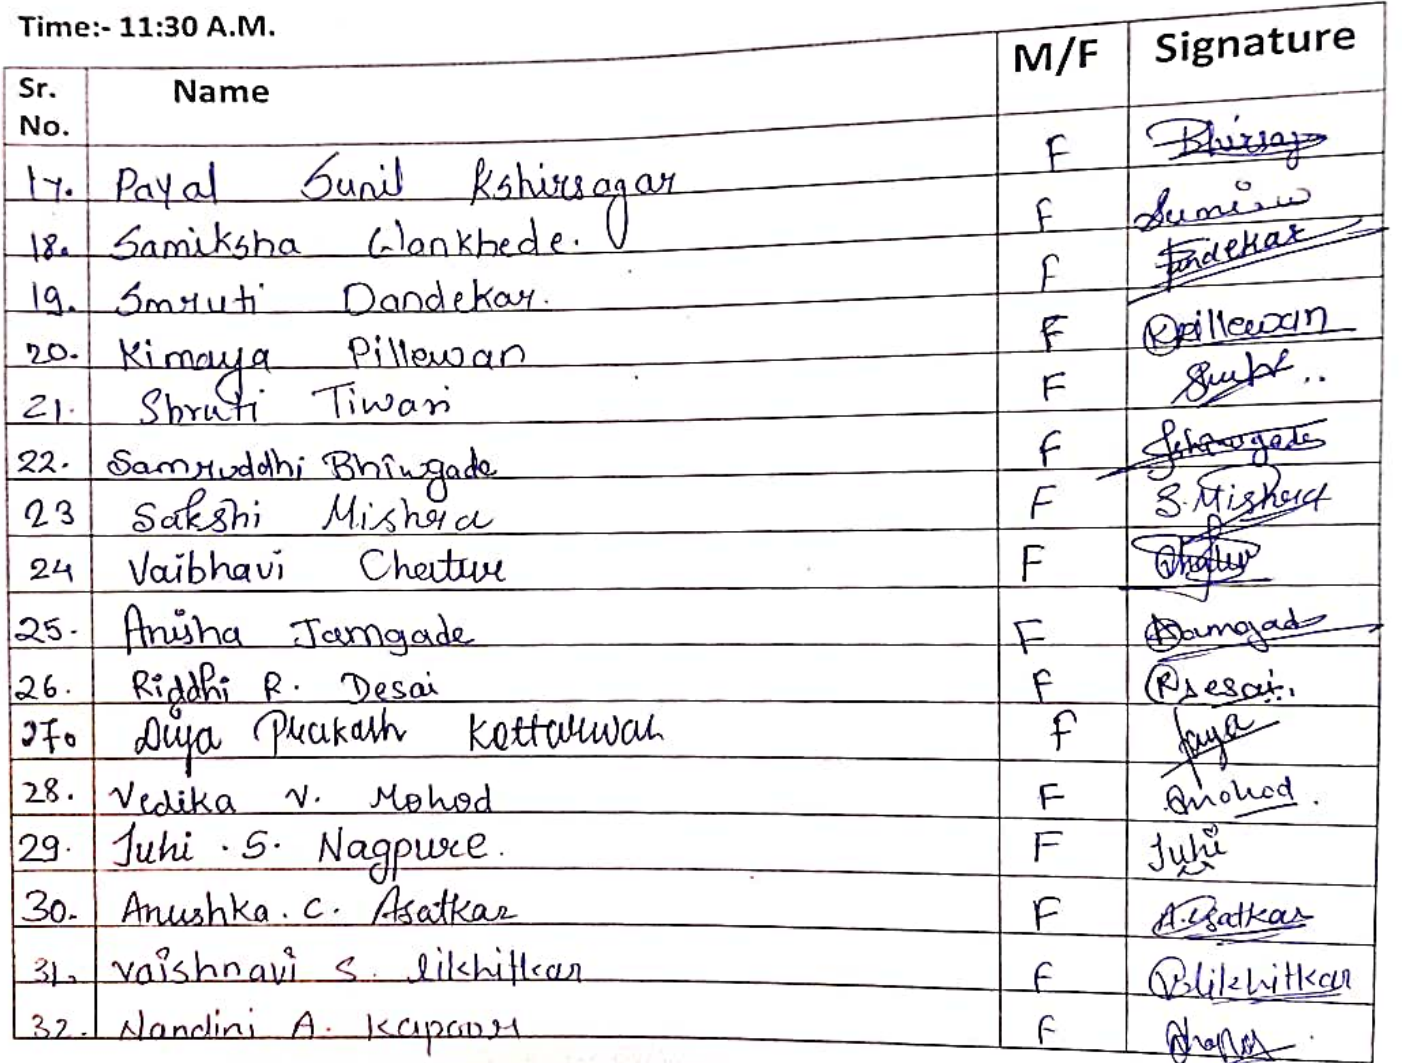 Time:- 11:30 A.M.
Sr. No. Name M/F Signature
17. Payal Sunil Kshirsagar F
18. Samiksha Wankhede. F
19. Smruti Dandekar. F
20. Kimaya Pillewan F Kpillewan
21. Shruti Tiwari F
22. Samruddhi Bhiwgade F
23 Sakshi Mishra F S.Mishra
24 Vaibhavi Chatur F
25. Anisha Jamgade F
26. Riddhi R. Desai F RDesai
27. Diya Prakash Kottarwar F
28. Vedika V. Mohod F
29. Juhi . S. Nagpure. F Juhi
30. Anushka. C. Asatkar F A.Asatkar
31. Vaishnavi S. likhitkar F Vlikhitkar
32. Nandini A. Kapoor F